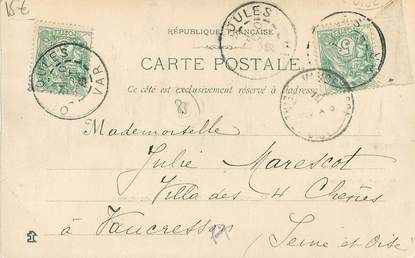 15€
RÉPUBLIQUE FRANÇAISE
CARTE POSTALE
Ce côté est exclusivement réservé à l'adresse
Mademoiselle
Julie Marescot
Villa des 4 Chênes
à Vaucresson
(Seine et Oise)